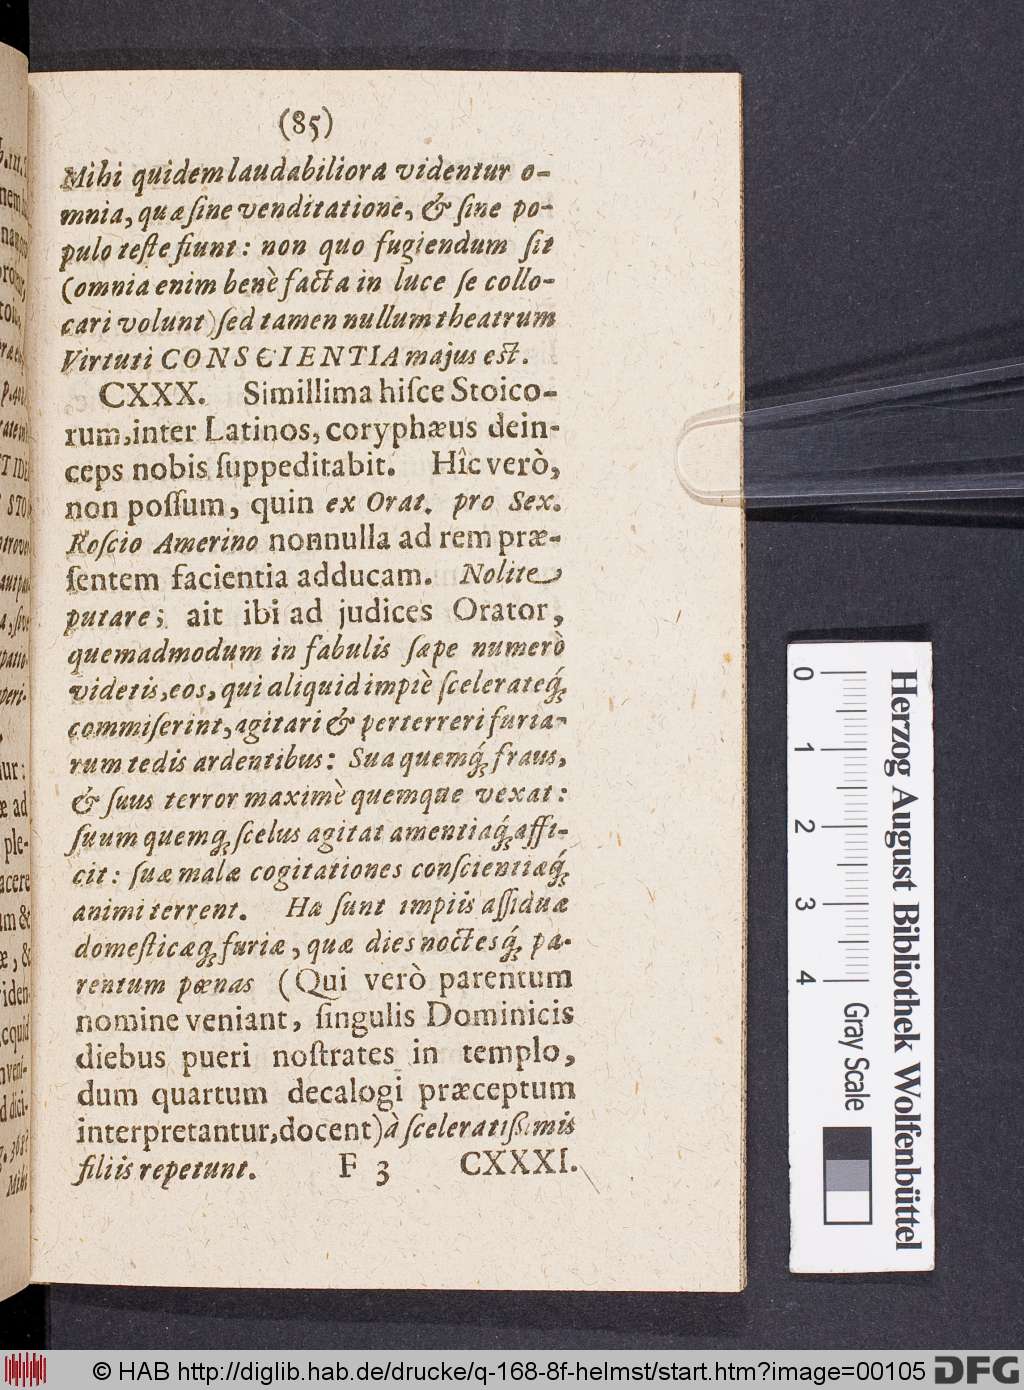 (85)
Mihi quidem laudabiliora videntur o-
mnia, quæ ſine venditatione, & ſine po-
pulo teſte fiunt: non quo fugiendum ſit
(omnia enim benè facta in luce ſe collo-
cari volunt) ſed tamen nullum theatrum
Virtuti CONSCIENTIA majus eſt.
CXXX. Simillima hiſce Stoico-
rum, inter Latinos, coryphæus dein-
ceps nobis ſuppeditabit. Hîc verò,
non poſſum, quin ex Orat. pro Sex.
Roſcio Amerino nonnulla ad rem præ-
ſentem facientia adducam. Nolite
putare; ait ibi ad judices Orator,
quemadmodum in fabulis ſæpe numerò
videtis, eos, qui aliquid impiè ſcelerateq́;
commiſerint, agitari & perterreri furia-
rum tedis ardentibus: Sua quemq́; fraus,
& ſuus terror maximè quemque vexat:
ſuum quemq; ſcelus agitat amentiaq́; affi-
cit: ſuæ malæ cogitationes conſcientiæq́;
animi terrent. Hæ ſunt impiis aſſiduæ
domeſticæq; furiæ, quæ dies noctesq́; pa-
rentum pœnas (Qui verò parentum
nomine veniant, ſingulis Dominicis
diebus pueri noſtrates in templo,
dum quartum decalogi præceptum
interpretantur, docent) à ſceleratiſſimis
filiis repetunt. F 3 CXXXI.
Herzog August Bibliothek Wolfenbüttel
0 1 2 3 4 Gray Scale
© HAB http://diglib.hab.de/drucke/q-168-8f-helmst/start.htm?image=00105 DFG